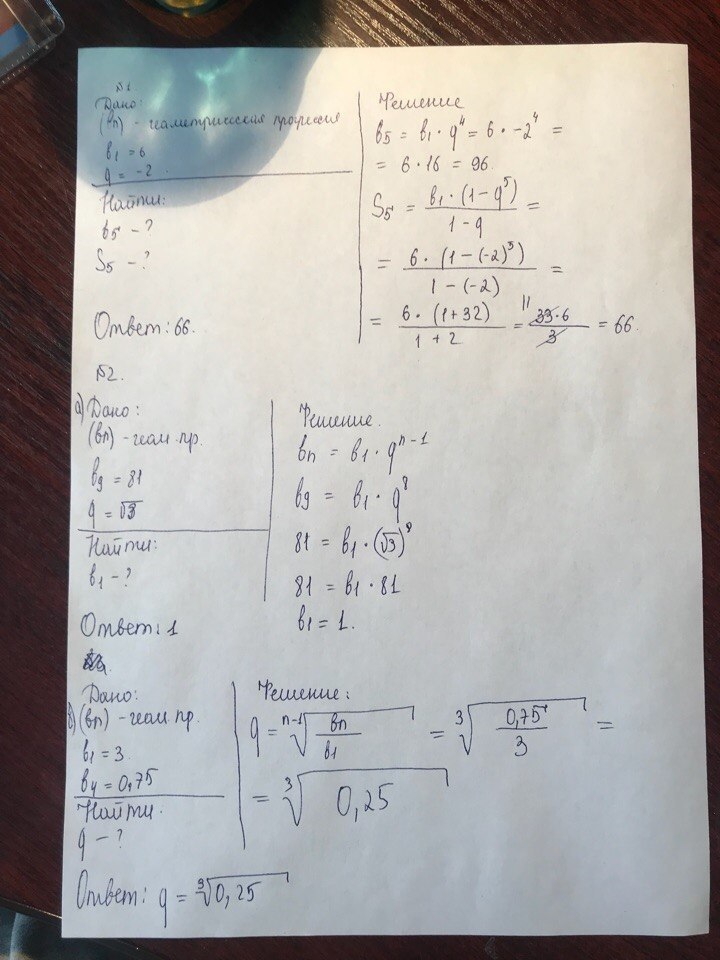 №1.
Дано:
(bn) - геометрическая прогрессия
b1 = 6
q = -2
Найти:
b5 - ?
S5 - ?
Ответ: 66.
Решение
b5 = b1 · q^4 = 6 · -2^4 =
= 6 · 16 = 96.
S5 = b1 · (1 - q^5) / 1 - q =
= 6 · (1 - (-2)^5) / 1 - (-2) =
= 6 · (1 + 32) / 1 + 2 = 11 33 · 6 / 3 = 66.
№2.
а) Дано:
(bn) - геом. пр.
b9 = 81
q = √3
Найти:
b1 - ?
Ответ: 1
Решение.
bn = b1 · q^n-1
b9 = b1 · q^8
81 = b1 · (√3)^8
81 = b1 · 81
b1 = 1.
Дано:
б) (bn) - геом. пр.
b1 = 3.
b4 = 0,75
Найти.
q - ?
Решение:
q = n-1√ bn / b1 = 3√ 0,75 / 3 =
= 3√ 0,25
Ответ: q = 3√0,25